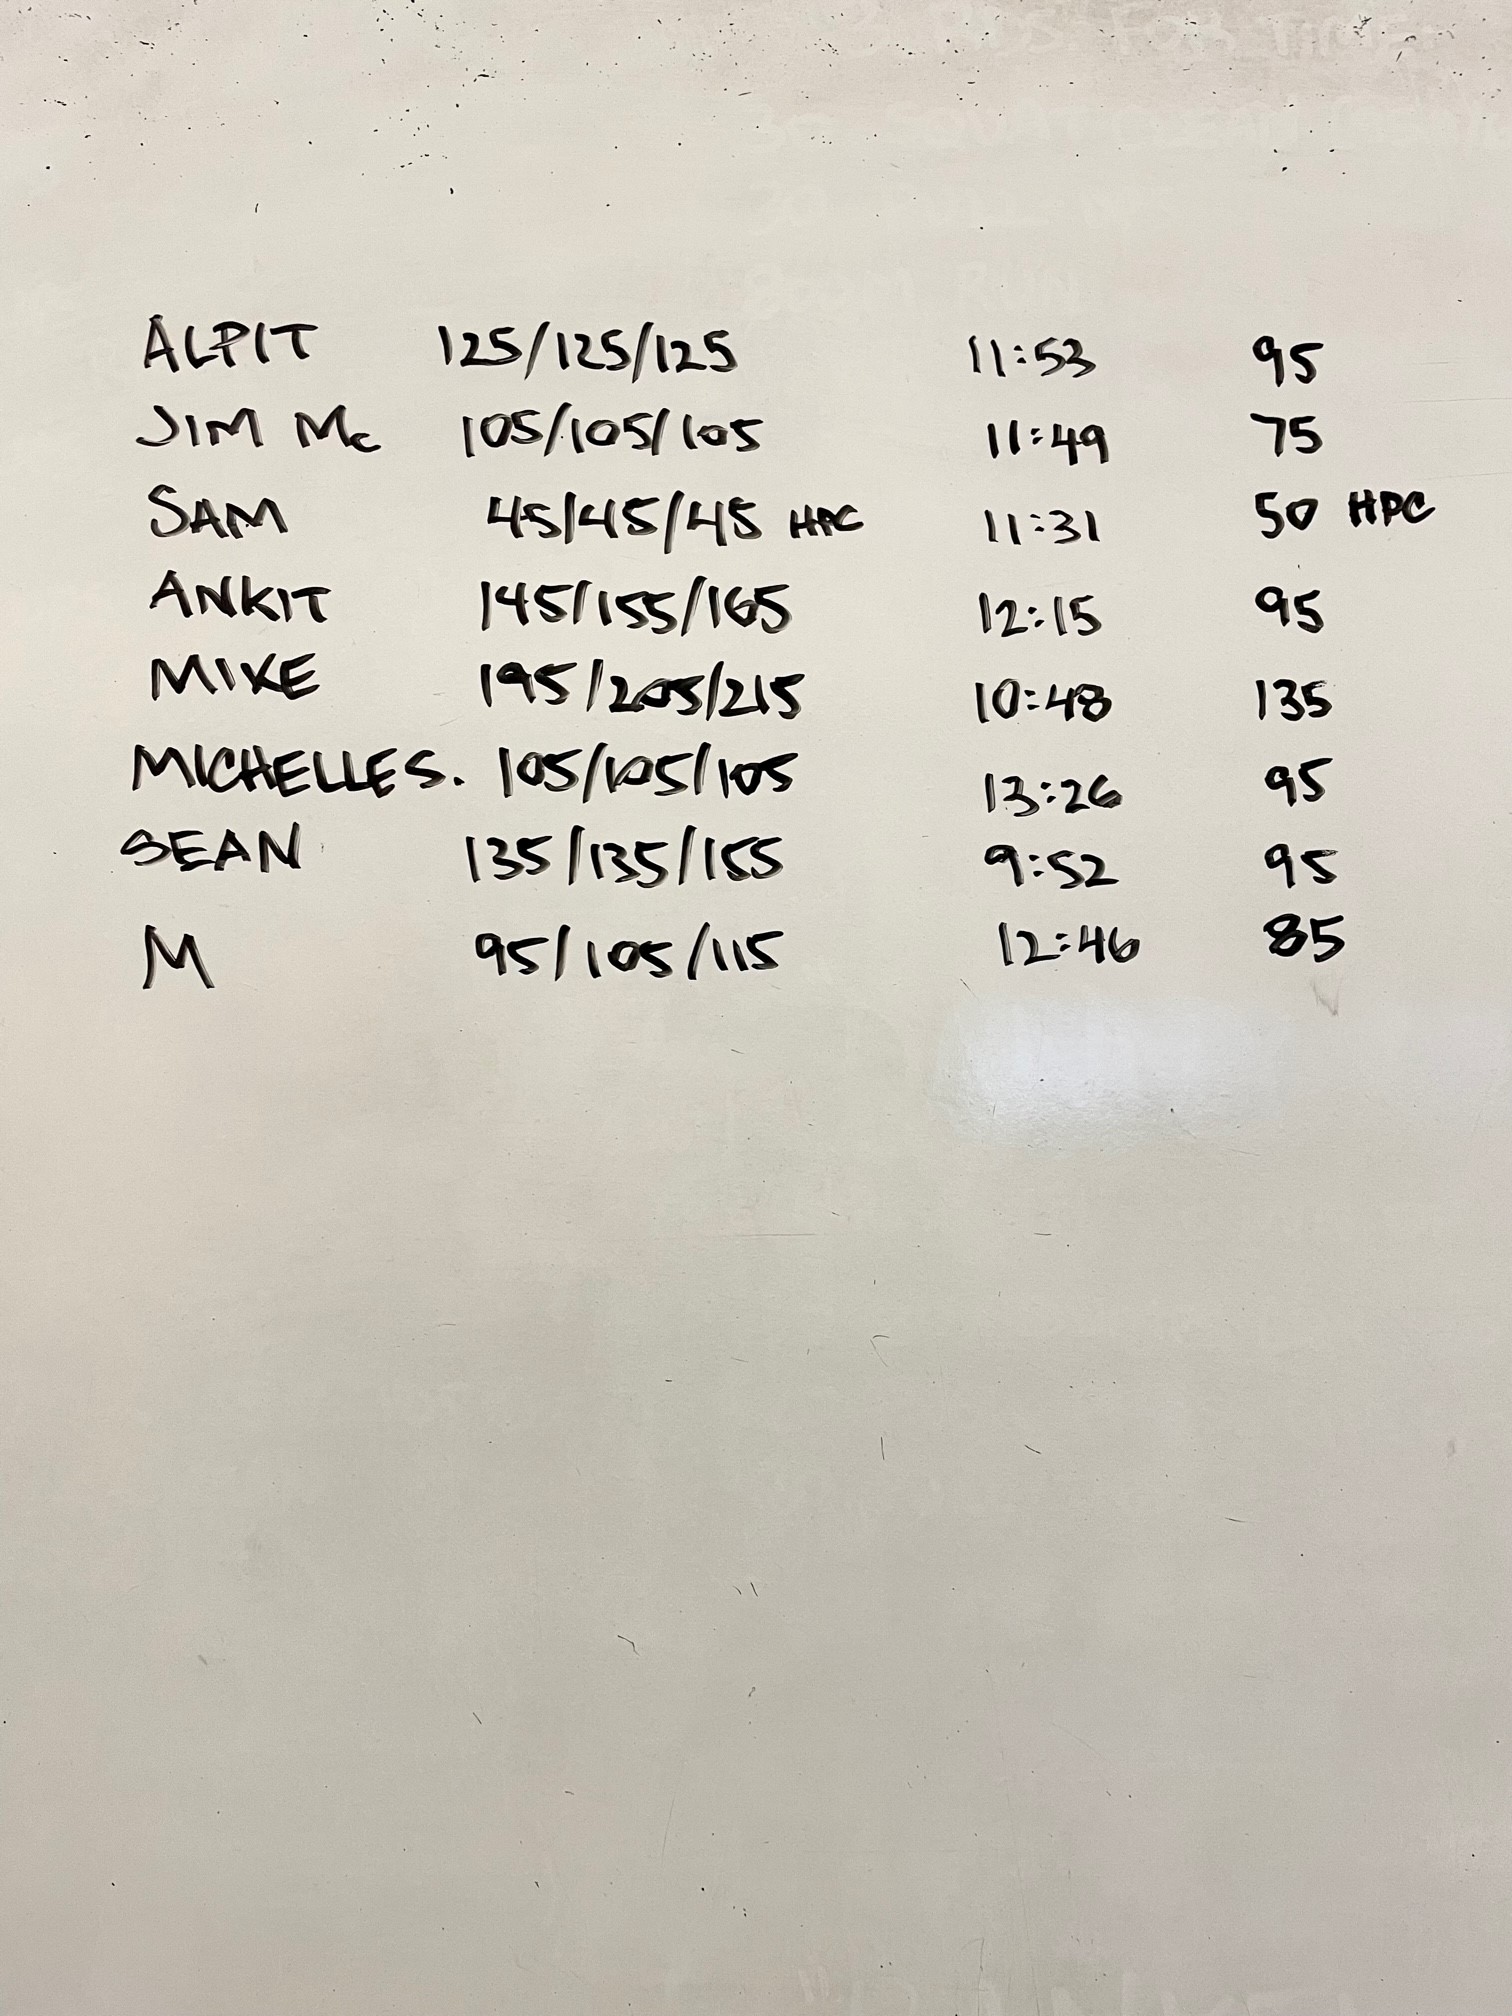 ALPIT 125/125/125 11:53 95
JIM Mc 105/105/105 11:49 75
SAM 45/45/45 HPC 11:31 50 HPC
ANKIT 145/155/165 12:15 95
MIKE 195/205/215 10:48 135
MICHELLE S. 105/105/105 13:26 95
SEAN 135/135/155 9:52 95
M 95/105/115 12:46 85